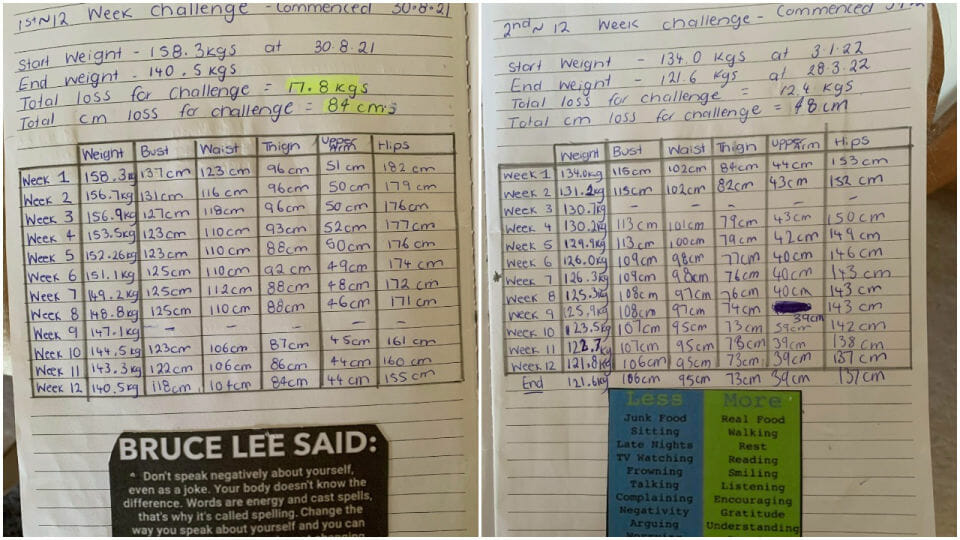 1st ~ 12 Week challenge - Commenced 30.8.21
Start Weight - 158.3kgs at 30.8.21
End weight - 140.5kgs
Total loss for challenge = 17.8kgs
Total cm loss for challenge = 84cms
Weight Bust Waist Thigh Upper Arm Hips
Week 1 158.3kg 137cm 123cm 96cm 51cm 182cm
Week 2 156.7kg 131cm 116cm 96cm 50cm 179cm
Week 3 156.9kg 127cm 118cm 96cm 50cm 176cm
Week 4 153.5kg 123cm 110cm 93cm 52cm 177cm
Week 5 152.26kg 123cm 110cm 88cm 50cm 176cm
Week 6 151.1kg 125cm 110cm 92cm 49cm 174cm
Week 7 149.2kg 125cm 112cm 88cm 48cm 172cm
Week 8 148.8kg 125cm 110cm 88cm 46cm 171cm
Week 9 147.1kg - - - - -
Week 10 144.5kg 123cm 106cm 87cm 45cm 161cm
Week 11 143.3kg 122cm 106cm 86cm 44cm 160cm
Week 12 140.5kg 118cm 104cm 84cm 44cm 155cm
BRUCE LEE SAID:
" Don't speak negatively about yourself,
even as a joke. Your body doesn't know the
difference. Words are energy and cast spells,
that's why it's called spelling. Change the
way you speak about yourself and you can
2nd ~ 12 Week challenge - Commenced
Start Weight - 134.0 kgs at 3.1.22
End Weight - 121.6 kgs at 28.3.22
Total loss for challenge = 12.4 kgs
Total cm loss for challenge = 48cm
Weight Bust Waist Thigh Upper Arm Hips
Week 1 134.0kg 115cm 102cm 84cm 44cm 153cm
Week 2 131.2kg 115cm 102cm 82cm 43cm 152cm
Week 3 130.7kg - - - - -
Week 4 130.2kg 113cm 101cm 79cm 43cm 150cm
Week 5 129.9kg 113cm 100cm 79cm 42cm 149cm
Week 6 126.0kg 109cm 98cm 77cm 40cm 146cm
Week 7 126.3kg 109cm 98cm 76cm 40cm 143cm
Week 8 125.3kg 108cm 97cm 76cm 40cm 143cm
Week 9 125.9kg 108cm 97cm 74cm 39cm 143cm
Week 10 123.5kg 107cm 95cm 73cm 39cm 142cm
Week 11 122.7kg 107cm 95cm 78cm 39cm 138cm
Week 12 121.8kg 106cm 95cm 73cm 39cm 137cm
End 121.6kg 106cm 95cm 73cm 39cm 137cm
Less More
Junk Food Real Food
Sitting Walking
Late Nights Rest
TV Watching Reading
Frowning Smiling
Talking Listening
Complaining Encouraging
Negativity Gratitude
Arguing Understanding